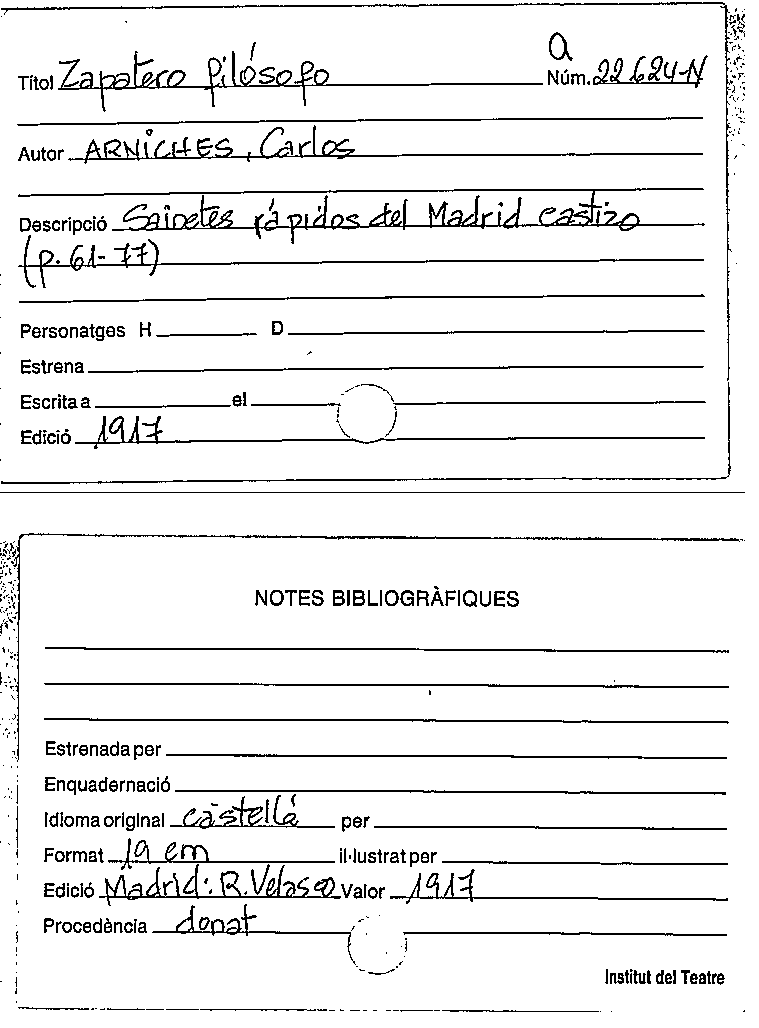 a
Títol Zapatero filósofo Núm. 22624-N
Autor ARNICHES, Carlos
Descripció Sainetes rápidos del Madrid castizo
(p. 61-77)
Personatges H D
Estrena
Escrita a el
Edició 1917
NOTES BIBLIOGRÀFIQUES
Estrenada per
Enquadernació
Idioma original castellá per
Format 19 cm il·lustrat per
Edició Madrid: R. Velasco Valor 1917
Procedència donat
Institut del Teatre